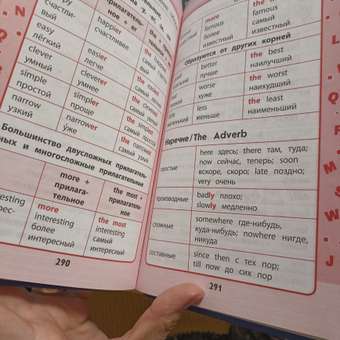 happier
счастливее
easy
лёгкий
easier
легче
the
самый
clever
умный
cleverer
умнее
the
самый
simple
простой
simpler
проще
the
самый
narrow
узкий
narrower
уже
the
самый
Большинство двусложных прилагатель-
ных и многосложные прилагательные
more +
прилага-
тельное
the most +
прилагатель-
ное
interesting
more
interesting
более
интересный
the most
interesting
самый
интересный
290
more
famous
более
известный
the
famous
самый
известный
образуются от других корней
better
лучше
the best
наилучший
worse
хуже
the worst
наихудший
less
меньше
the least
наименьший
Наречие/The Adverb
here здесь; there там, туда;
now сейчас, теперь; soon
вскоре, скоро; late поздно;
very очень
badly плохо;
slowly медленно
somewhere где-нибудь,
куда-нибудь; nowhere нигде,
никуда
составные
since then с тех пор;
till now до сих пор
291
N
Q
L
Q
F
A
M
S
W
J